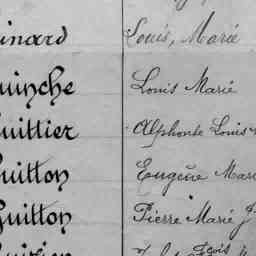 inard Louis, Marie
uinche Louis Marie
uittier Alphonse Louis
uitton Eugène Mari
Guitton Pierre Marie J